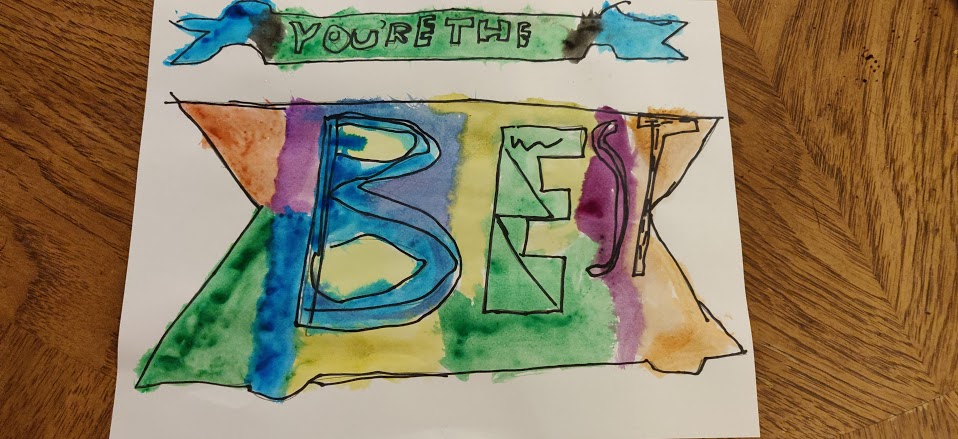 YOU'RE THE
BEST